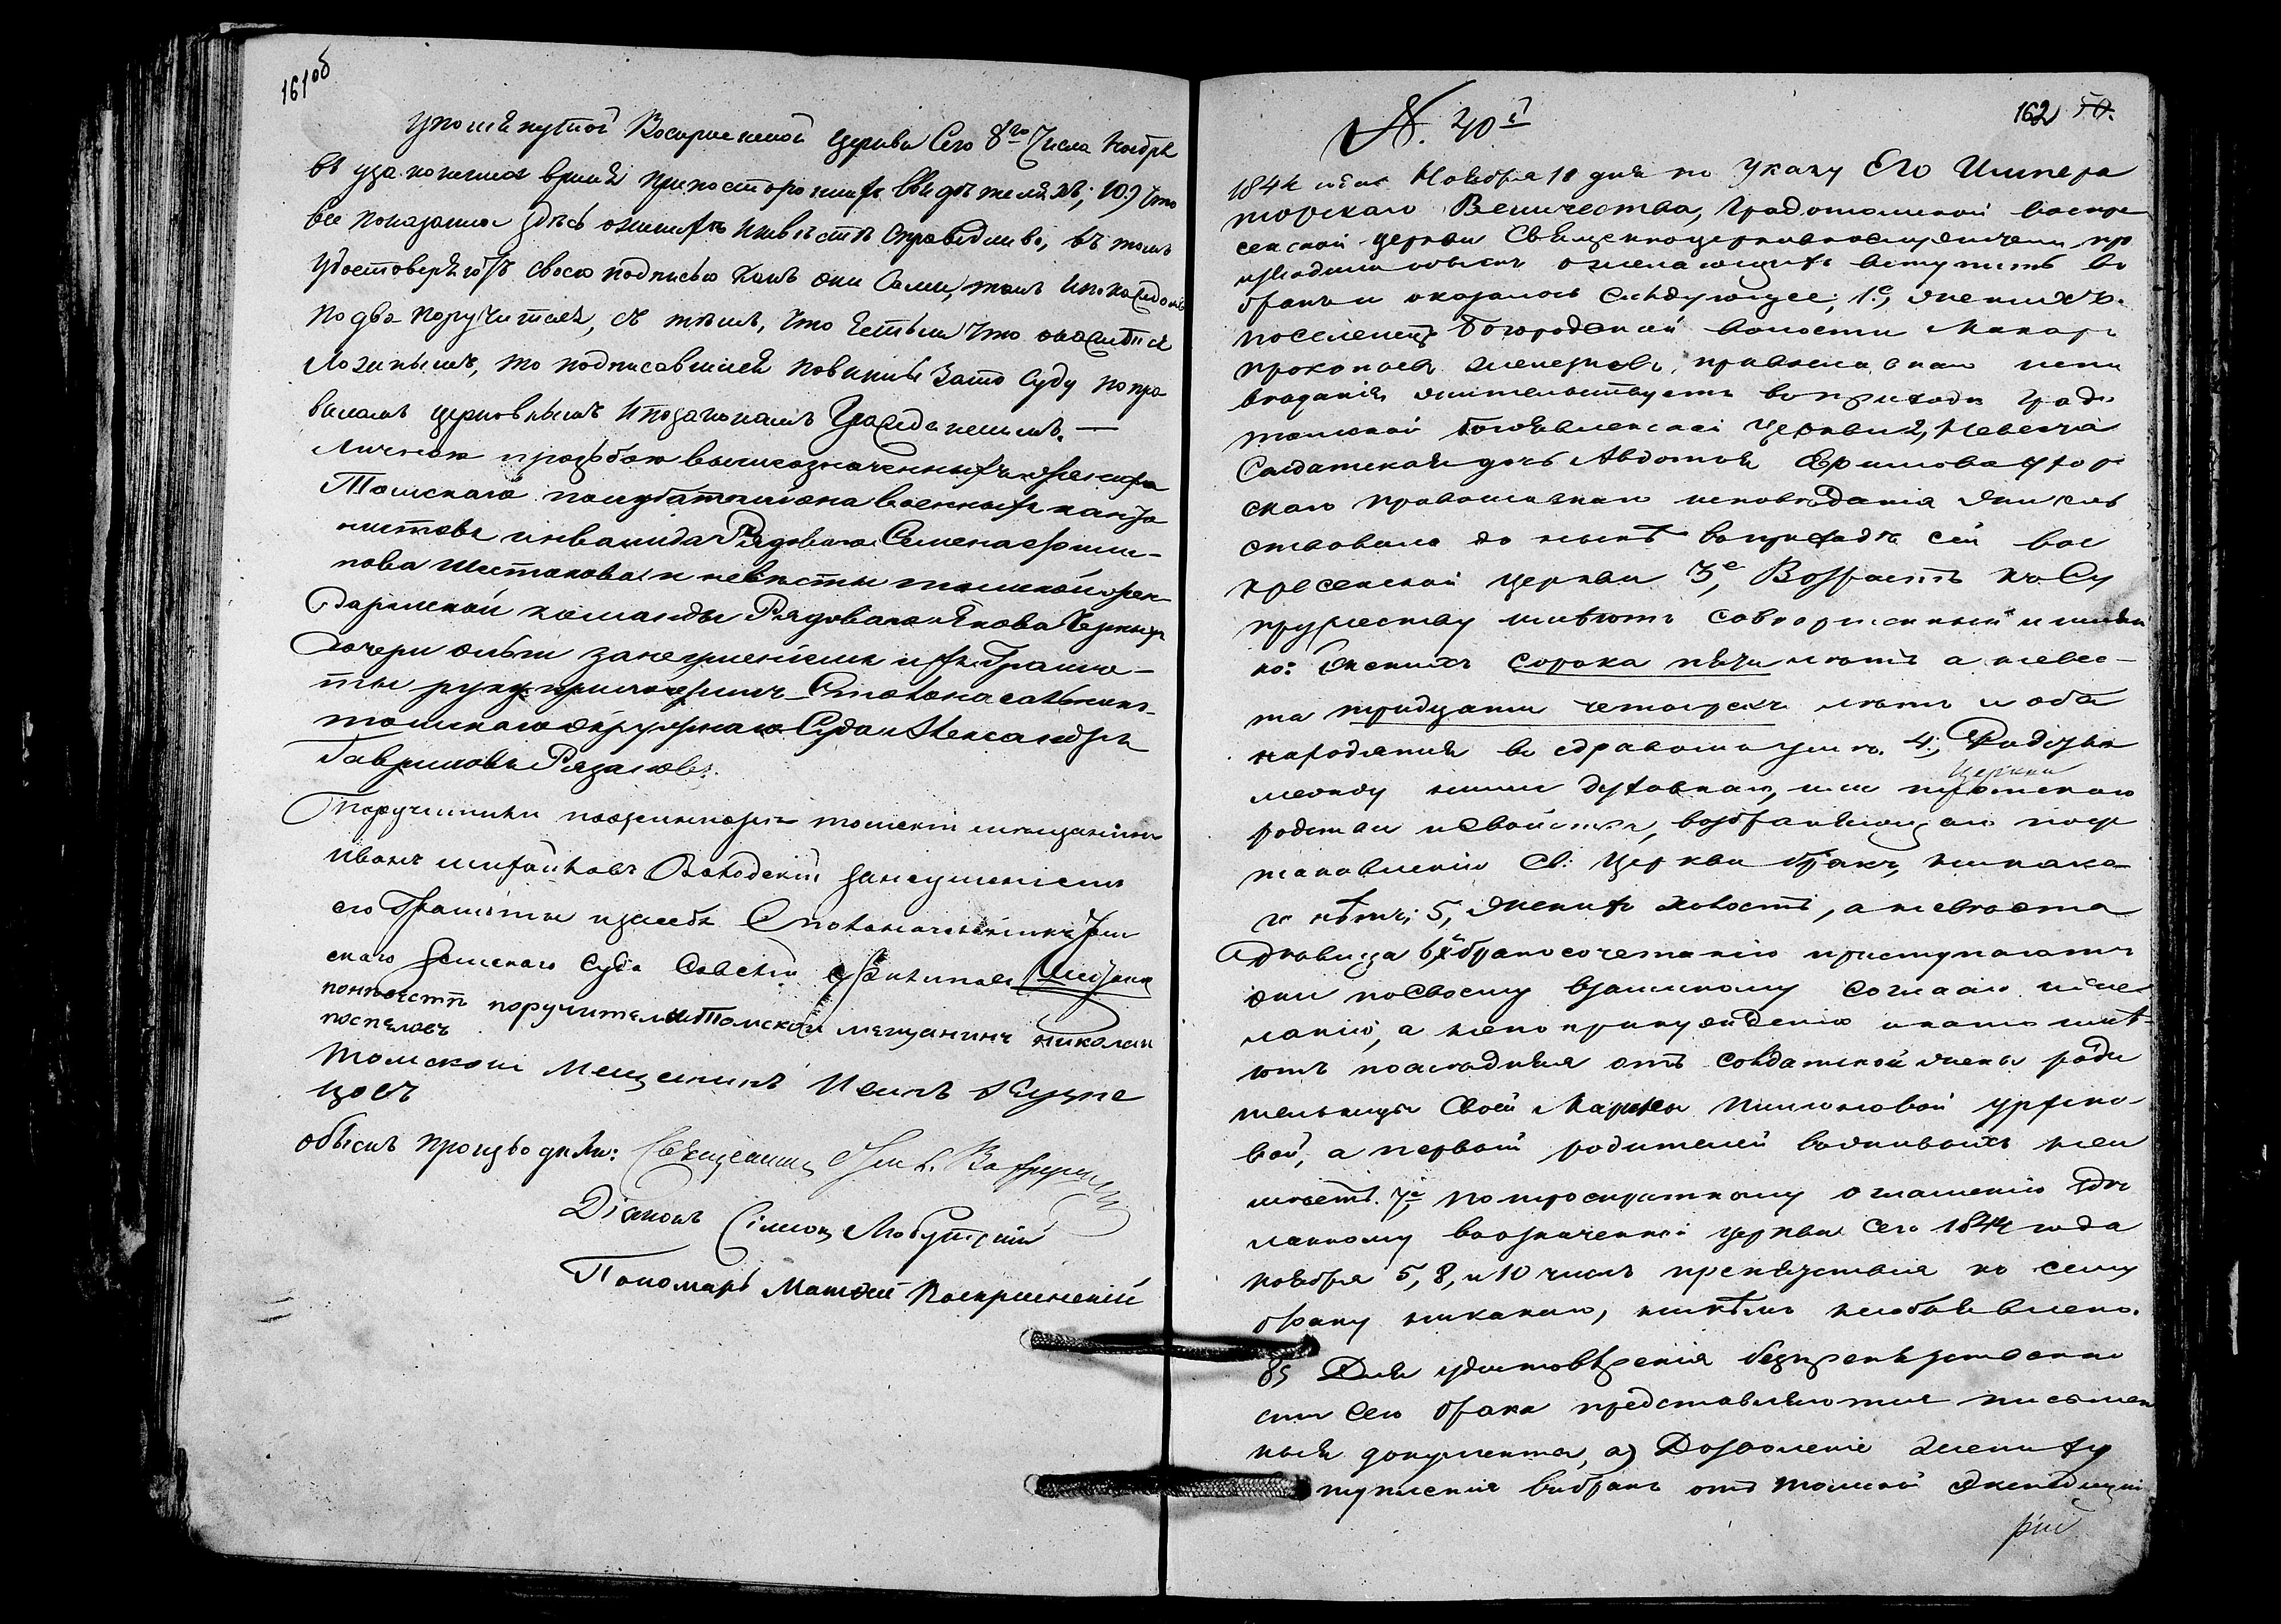 161об
упомянутой Воскресенской церкви сего 8го числа Ноября
въ узаконенное время при постороннихъ свидетеляхъ; 10.) Что
все показанное здѣсь о женихѣ и невѣстѣ справедливо, въ томъ
удостоверяютъ своею подписью какъ они сами, такъ и по каждомъ
по два поручителя, съ тѣмъ, что естьли что окажется
ложнымъ, то подписавшиеся повинны зато суду по пра
виламъ церковнымъ и по законамъ Гражданскимъ. —
Личною прозьбою вышеозначенныхъ жениха
Томскаго полубаталиона военныхъ канто
нистовъ инвалида Рядоваго Семена Филип-
пова Шестакова и невѣсты томской жан-
дармской команды Рядоваго Якова
дочери за неумениемъ ихъ грамо-
ты руку приложилъ Столоначальникъ
томскаго окружнаго Суда Александръ
Гавриловъ Рязановъ.
Поручители по женихѣ томский мещанинъ
Иванъ Михайловъ за неумениемъ
его Грамоты и за себя Столоначальникъ Том
скаго Земскаго Суда
по невѣсте поручители Томской мещанинъ николаи
поспеловъ
Томскои Мещенинъ
цовъ
обыскъ производили: Священникъ
Дiаконъ Сiмеонъ
Пономарь Матфей Воскресенскiй
162
№. 40й
1844 года Ноября 10 дня по указу Его Импера
торскаго Величества, Градотомской воскре
сенской церкви Священноцерковнослужители про
изводили обыскъ о желающихъ вступить въ
бракъ и оказалось следующее; 1е, женихъ
поселенецъ Богородской волости Макаръ
Прокопьевъ православнаго испо
веданiя жительствуетъ въ приходе Градо
томской Богоявленской церкви 2, Невеста
Солдатская дочь Авдотья Ефимова
скаго православнаго исповѣданiя житель
ствовала до нынѣ въ приходе сей вос
кресенской церкви 3е, Возрастъ къ Су
пружеству имѣютъ совершенный и имян
но: Женихъ сорока пяти лѣтъ а невес-
та тридцати четырехъ лѣтъ и оба
находятся въ здравомъ уме. 4., Родства
между ними духовнаго, или плотскаго
Церкви
родства и свойства, возбраняющаго по ус
тановленiю Св. Церкви бракъ, никака
го нѣтъ; 5, Женихъ холостъ, а невеста
вдовица 6, къ бракосочетанiю приступаютъ
они по своему взаимному согласiю и же-
ланiю, а не по принужденiю и на то имѣ-
ютъ последняя отъ солдатской жены роди
тельницы своей
вой, а первый родителей въ живыхъ неи
мѣетъ. 7е по троекратному оглашенiю сдѣ
ланному въ означенной церкви сего 1844 года
ноября 5, 8, и 10 числъ препятствiя къ сему
браку никакаго, никѣмъ необъявлено.
8, Для удостовѣренiя безпрепятственно
сти сего брака представляются письмен
ныя документы, а) Дозволенiе жениху
вступленiя въ бракъ отъ томской экспедицiи